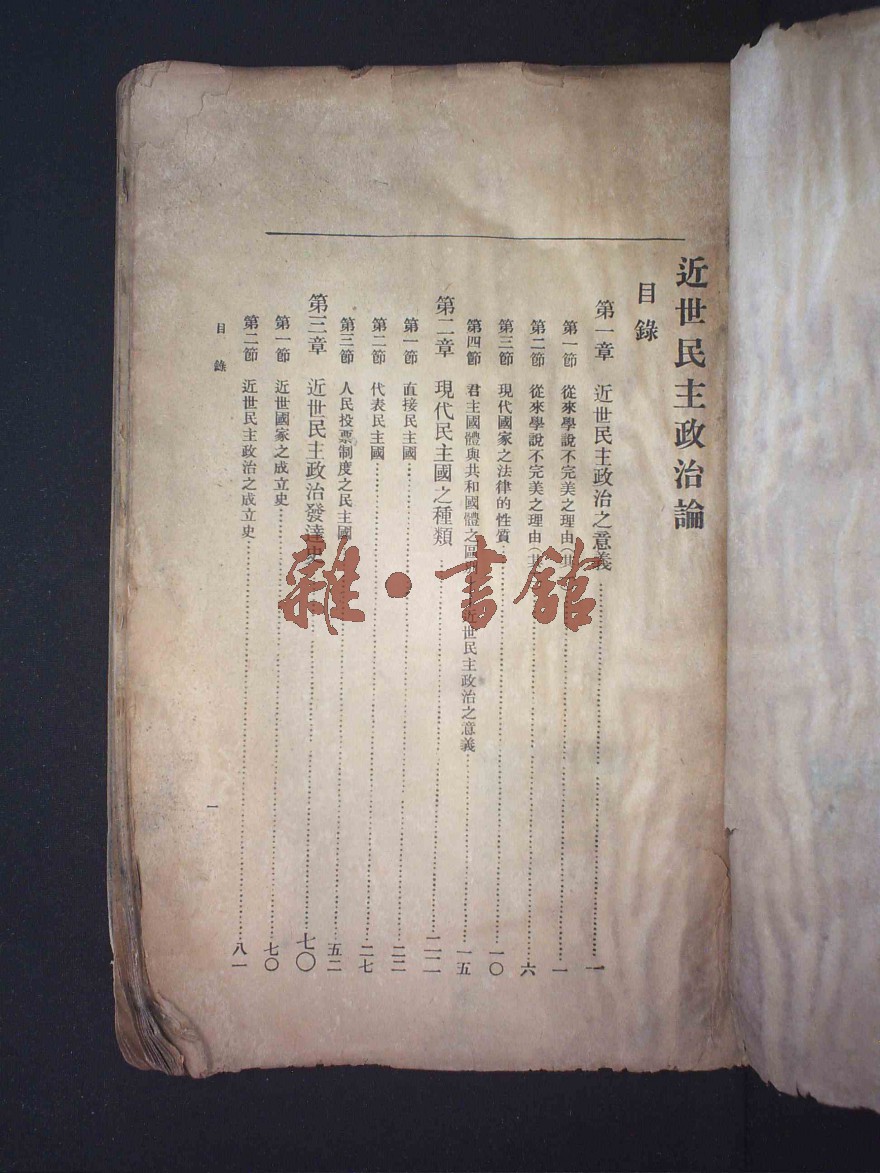 近世民主政治論
目錄
第一章 近世民主政治之意義……一
第一節 從來學說不完美之理由(其……一
第二節 從來學說不完美之理由(其……六
第三節 現代國家之法律的性質……一〇
第四節 君主國體與共和國體之區 近世民主政治之意義……一五
第二章 現代民主國之種類……二二
第一節 直接民主國……二二
第二節 代表民主國……二七
第三節 人民投票制度之民主國……五二
第三章 近世民主政治發達史……七〇
第一節 近世國家之成立史……七〇
第二節 近世民主政治之成立史……八一
目錄
一
雜·書館